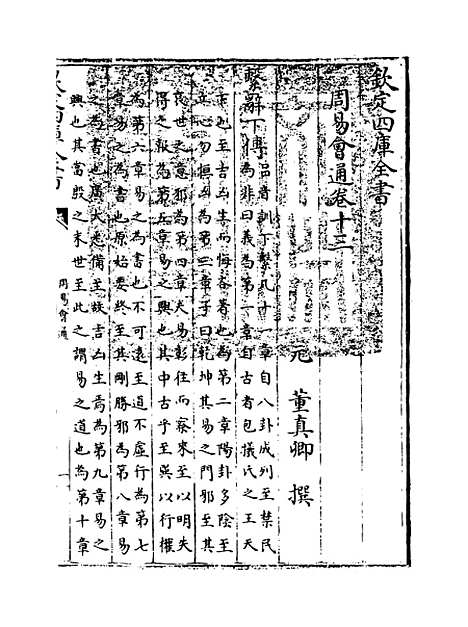 欽定四庫全書
周易會通卷十三
元 董真卿 撰
繫辭下傳
呂音訓丁繫凡十一章自八卦成列至禁民
為非曰義為第一章自古者包犧氏之王天
下也至吉凶生而悔吝著也為第二章陽卦多陰至
立心勿恒凶為第三章子曰乾坤其易之門邪至其
衰世之意邪為第四章夫易彰往而察來至以明失
得之報為第五章易之興也其中古乎至巽以行權
為第六章易之為書也不可遠至道不虛行為第七
章易之為書也原始要終至其剛勝邪為第八章易
之為書也廣大悉備至故吉凶生焉為第九章易之
興也其當殷之末世至此之謂易之道也為第十章
周易會通
一